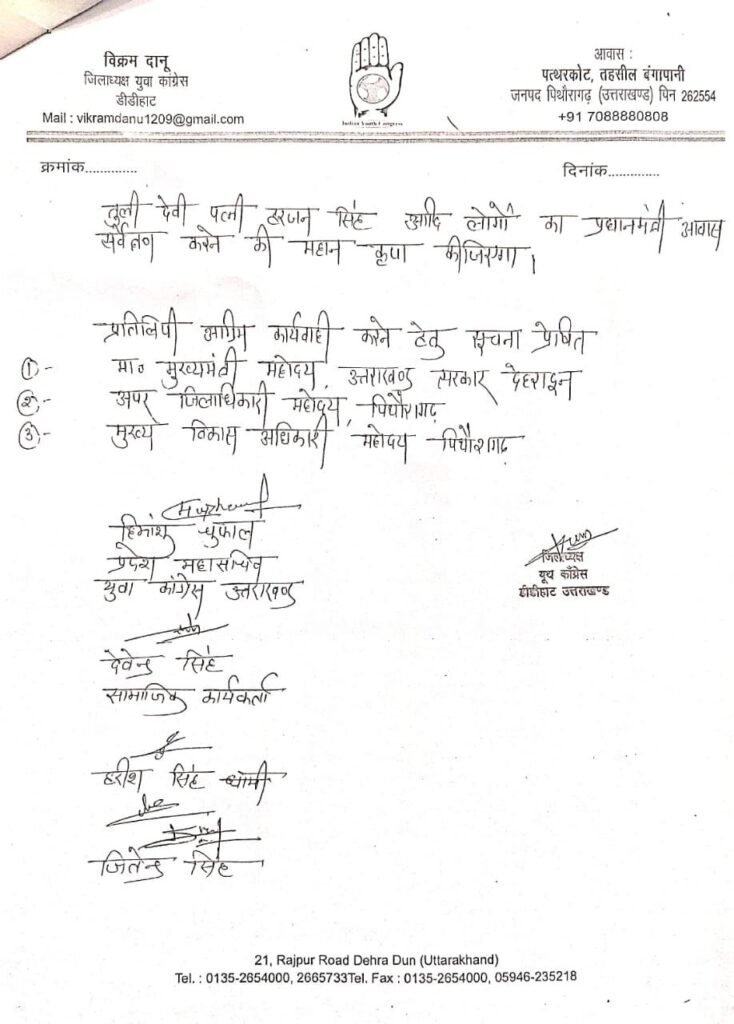 विक्रम दानू
जिलाध्यक्ष युवा कांग्रेस
डीडीहाट
Mail : vikramdanu1209@gmail.com
Indian Youth Congress
आवास :
पत्थरकोट, तहसील बंगापानी
जनपद पिथौरागढ़ (उत्तराखण्ड) पिन 262554
+91 7088880808
क्रमांक.............
दिनांक.............
देवी पत्नी सिंह आदि लोगों का प्रधानमंत्री आवास
करने की महान कृपा कीजिएगा।
प्रतिलिपी अग्रिम कार्यवाही करने हेतु सूचना प्रेषित
①- मा० मुख्यमंत्री महोदय, उत्तराखण्ड सरकार देहरादून
②- अपर जिलाधिकारी महोदय, पिथौरागढ़
③- मुख्य विकास अधिकारी महोदय पिथौरागढ़
हिमांशु चुफाल
प्रदेश महासचिव
युवा कांग्रेस उत्तराखण्ड
जिलाध्यक्ष
यूथ काँग्रेस
डीडीहाट उत्तराखण्ड
देवेन्द्र सिंह
सामाजिक कार्यकर्ता
हरीश सिंह धामी
जितेन्द्र सिंह
21, Rajpur Road Dehra Dun (Uttarakhand)
Tel. : 0135-2654000, 2665733Tel. Fax : 0135-2654000, 05946-235218